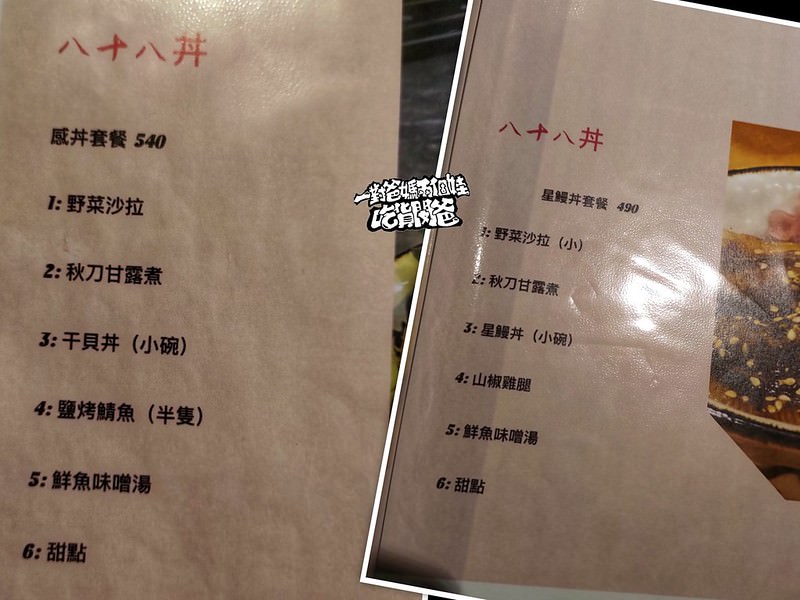 八十八丼
感丼套餐 540
1: 野菜沙拉
2: 秋刀甘露煮
3: 干貝丼（小碗）
4: 鹽烤鯖魚（半隻）
5: 鮮魚味噌湯
6: 甜點
一對爸媽兩個娃
吃貨闆爸
八十八丼
星鰻丼套餐 490
1: 野菜沙拉（小）
2: 秋刀甘露煮
3: 星鰻丼（小碗）
4: 山椒雞腿
5: 鮮魚味噌湯
6: 甜點